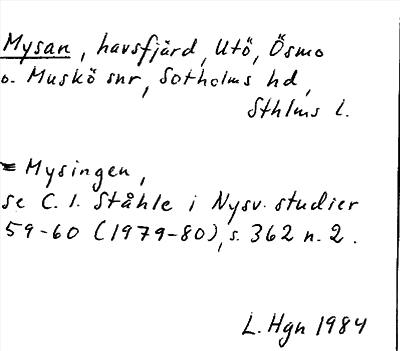 Mysan, havsfjärd, Utö, Ösmo
o. Muskö snr, Sotholms hd,
Sthlms l.
= Mysingen,
se C. I. Ståhle i Nysv. studier
59-60 (1979-80), s. 362 n. 2.
L. Hgn 1984